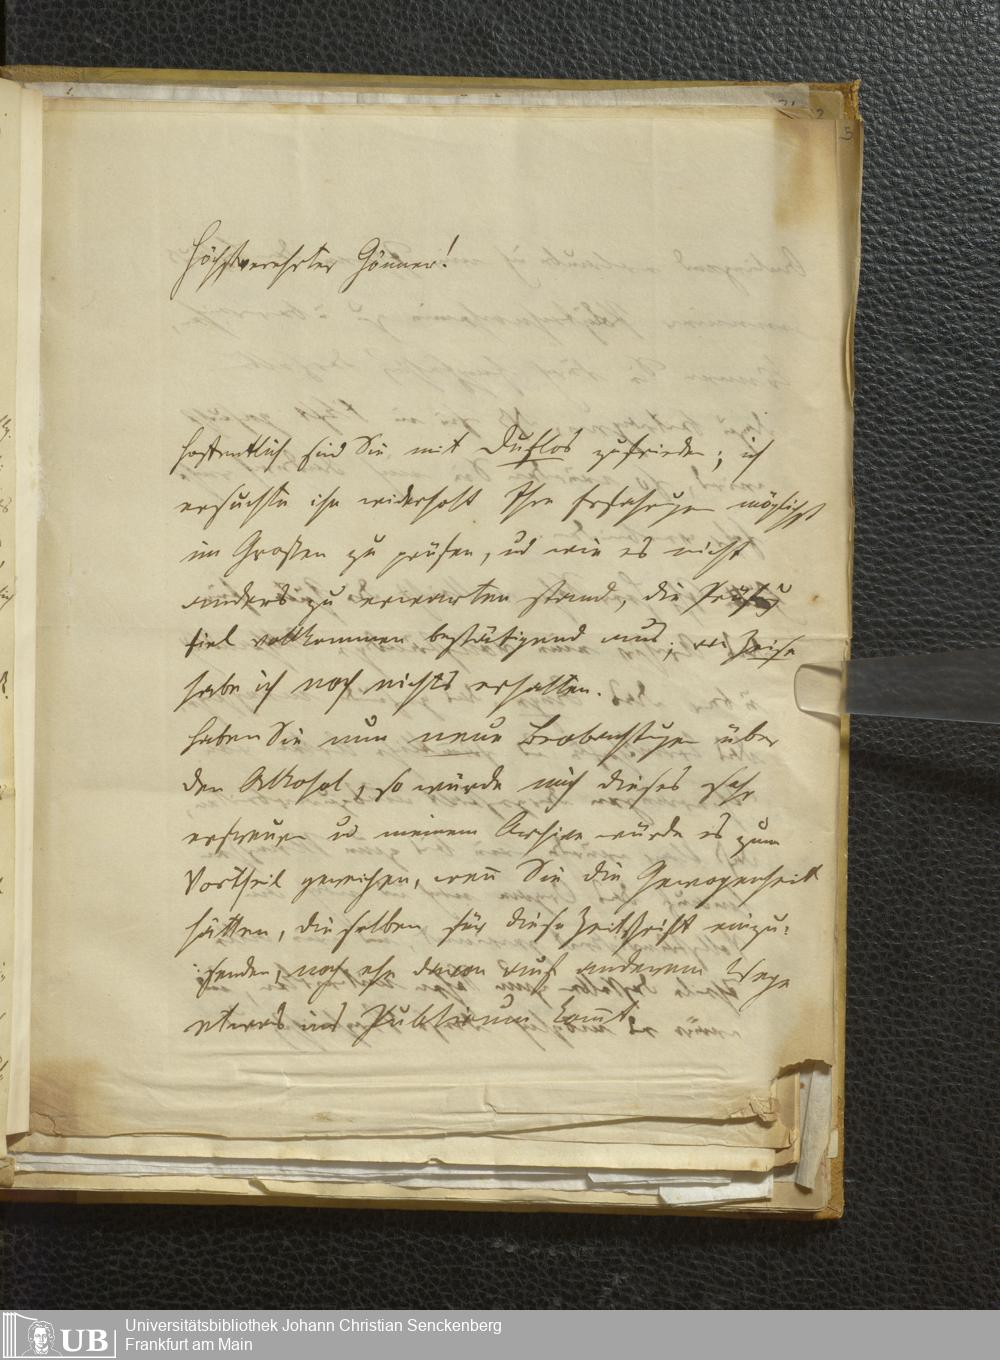 Höchstverehrter Gönner!
hoffentlich sind Sie mit Duflos zufrieden; ich
ersuchte ihn widerholt Ihre Erfahrungen möglichst
im Großen zu prüfen, ud wie es nicht
anders zu erwarten stand, die Prüfung
fiel vollkommen bestätigend aus; von Zeise
habe ich noch nichts erhalten.
Haben Sie nun neue Beobachtungen über
den Alkohol, so würde mich dieses sehr
erfreuen ud meinem Archive würde es zum
Vortheil gereichen, wen̄ Sie die Gewogenheit
hätten, dieselben für diese Zeitschrift einzu-
senden, noch ehe davon auf anderem Wege
etwas ins Publikum kom̄t.
UB
Universitätsbibliothek Johann Christian Senckenberg
Frankfurt am Main